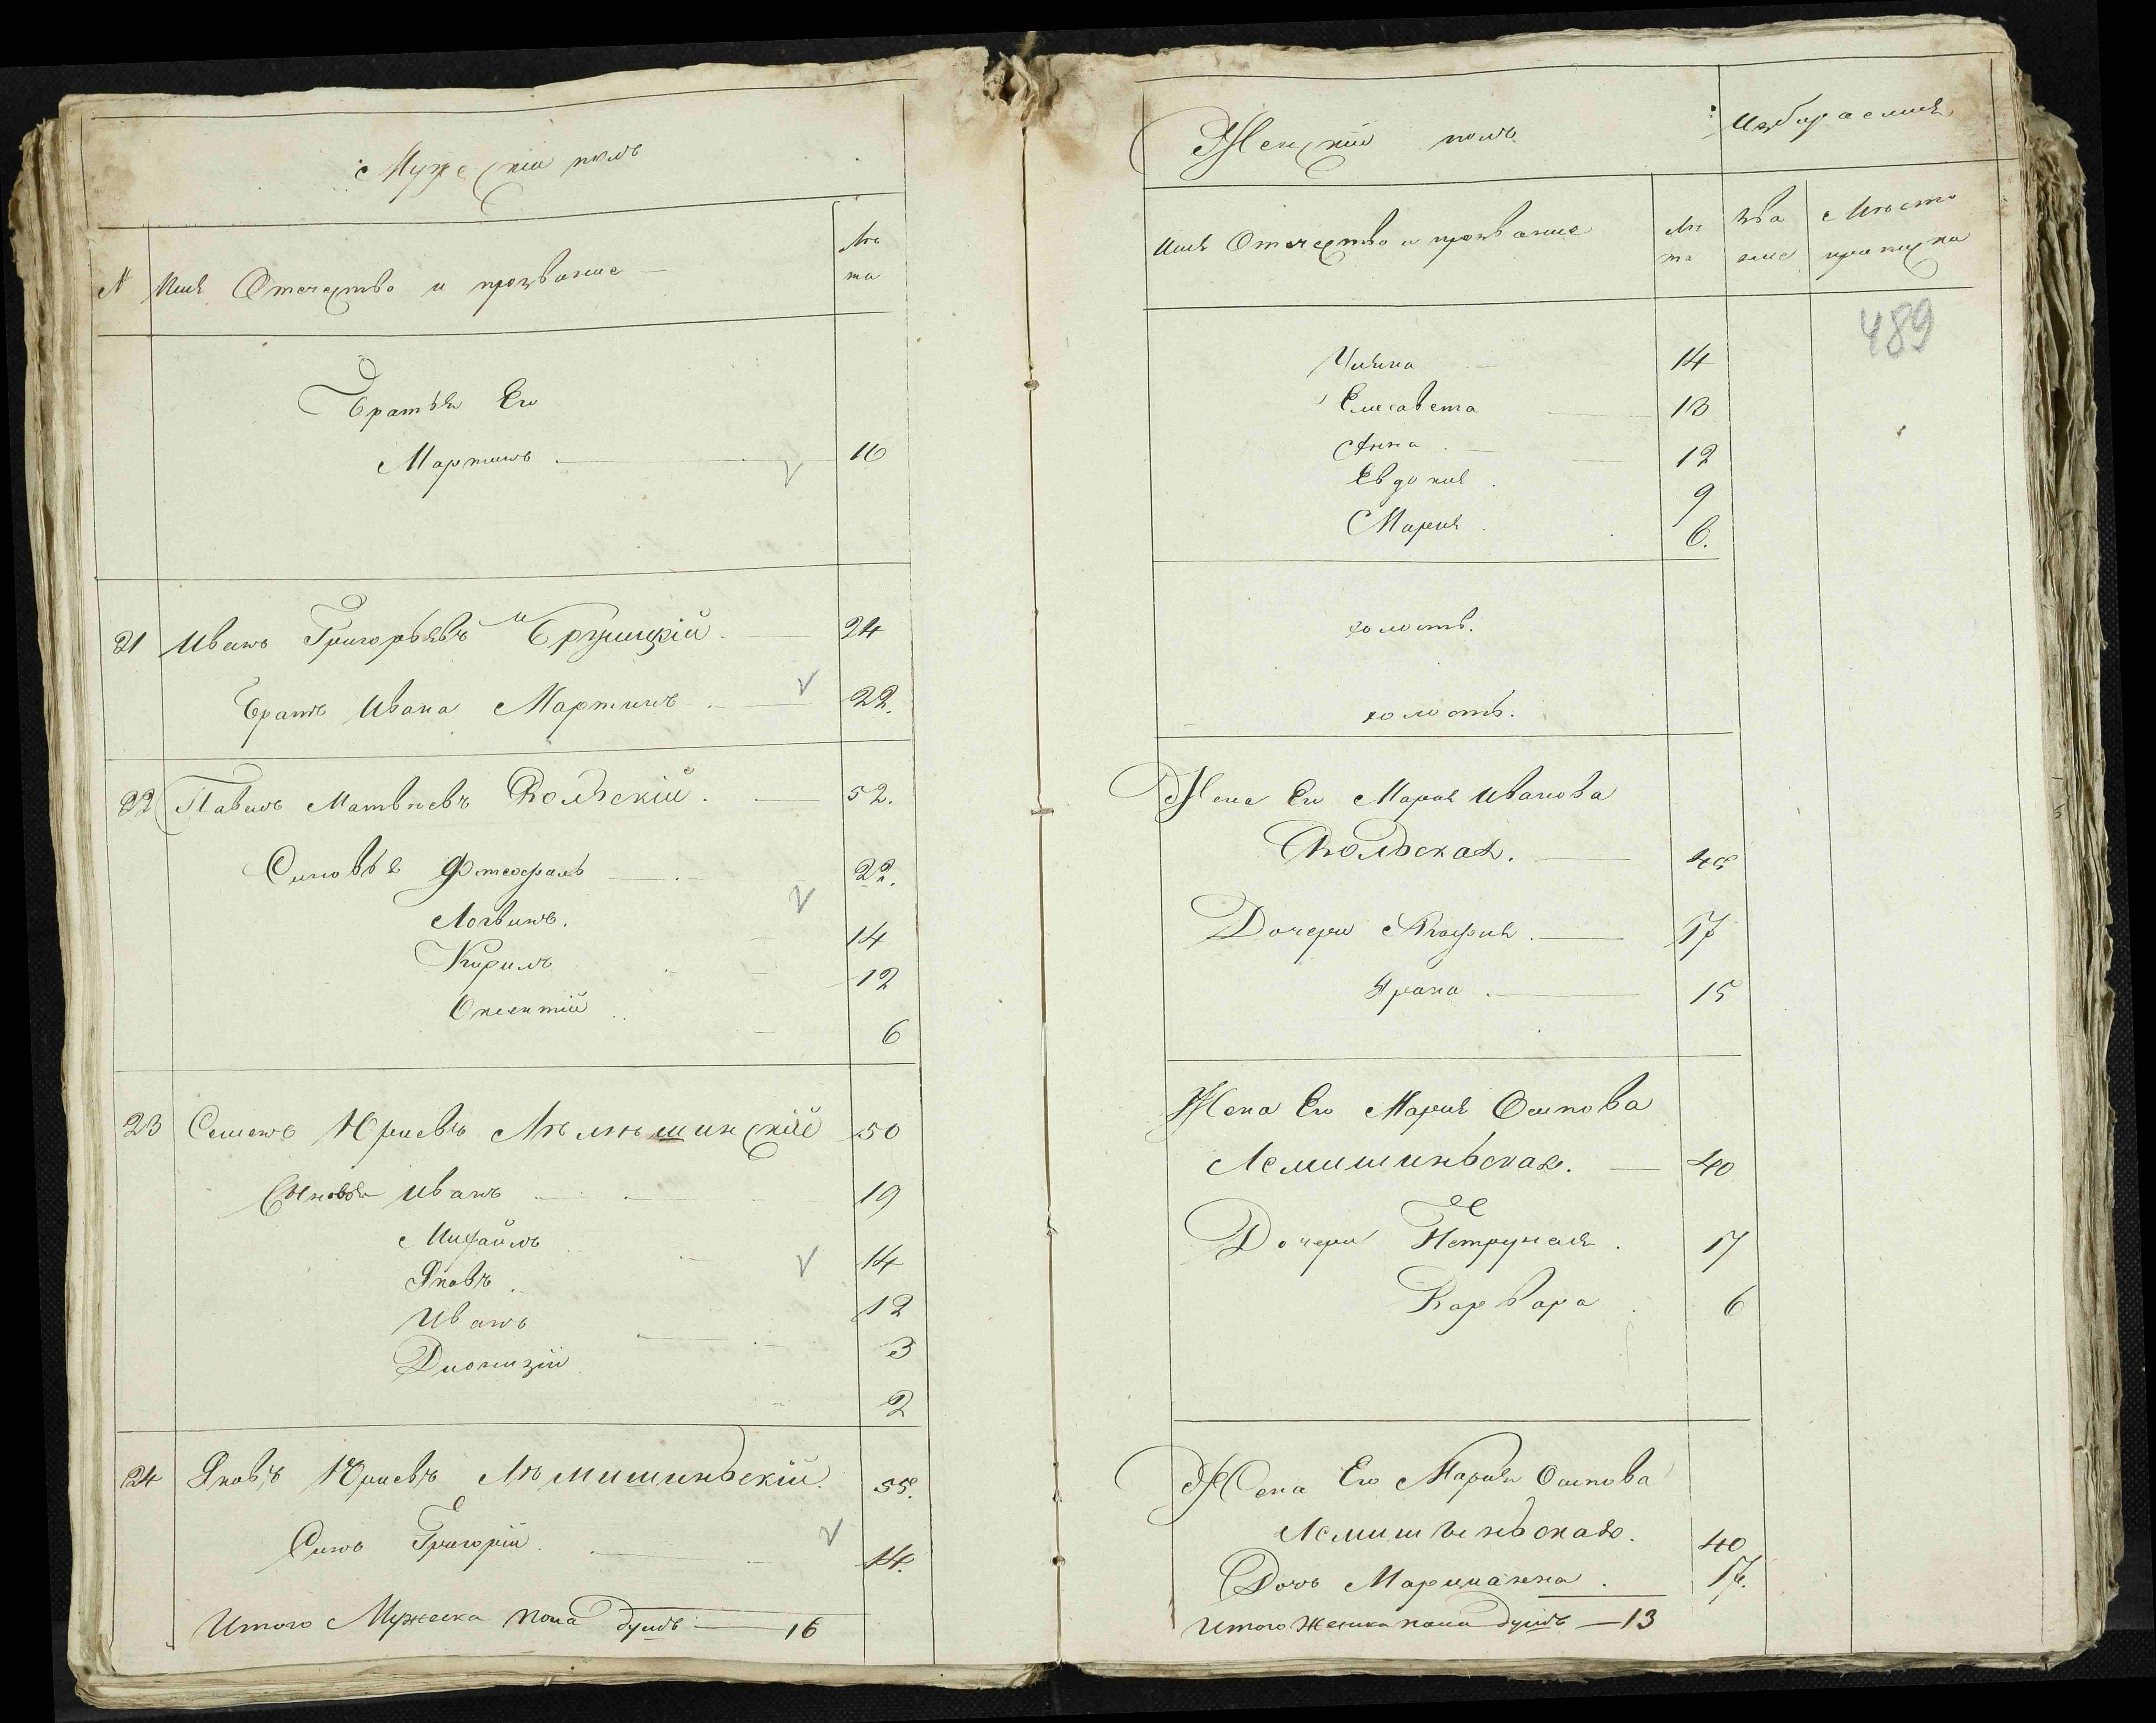 Мужескій полъ
№ Имя Отечество и прозваніе
Лѣ
та
Братья Его
Мартинъ 16
21 Иванъ Григорьевъ 24
Братъ Ивана Мартинъ 22.
22 Павелъ Матвѣевъ Вольскій. 52.
Синовья 22.
Логвинъ. 14
Кирилъ 12
6
23 Семенъ Юриевъ Лѣмѣшинскій 50
Сыновья Иванъ 19
Михайлъ 14
Яковъ 12
Иванъ 3
Дионизій 2
24 Яковъ Юриевъ Лѣмишиньскій. 55.
Синъ Григорій. 14.
Итого Мужеска пола душъ — 16
Женскій полъ
Имя Отечество и прозваніе
Лѣ
та
Зва
ние
Мѣсто
приписки
489
14
Елисавета 13
Анна 12
Евдокия 9
Мария 6.
холостъ.
холостъ.
Жена Его Мария Иванова
Вольская.
Дочери 17
15
Жена Его Мария Осипова
Лемишиньская. 40
Дочери Петрунеля 17
Варвара 6
Жена Его Мария Осипова
40
Дочь Марцианна 17.
Итого Женска пола душъ — 13